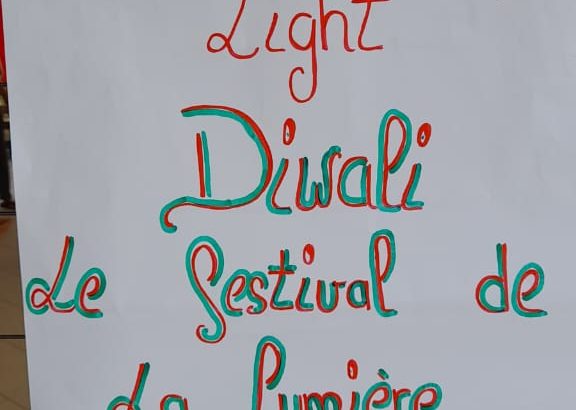 Light
Diwali
Le festival de
La lumière